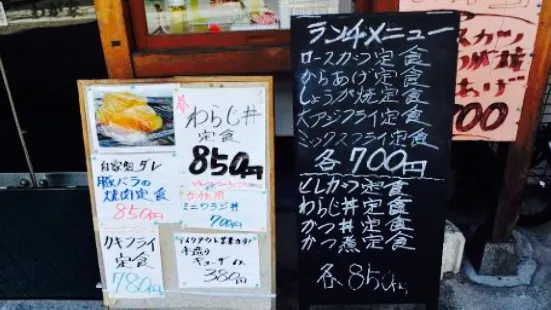 わらじ丼
定食
850円
自家製ダレ
豚バラの
焼肉定食
850円
女性用
ミニワラジ丼
700円
カキフライ
定食
780円
手造り
ギョーザ
380円
ランチメニュー
ロースカツ定食
からあげ定食
しょうが焼定食
大アジフライ定食
ミックスフライ定食
各700円
ヒレカツ定食
わらじ丼定食
かつ丼定食
かつ煮定食
各850円